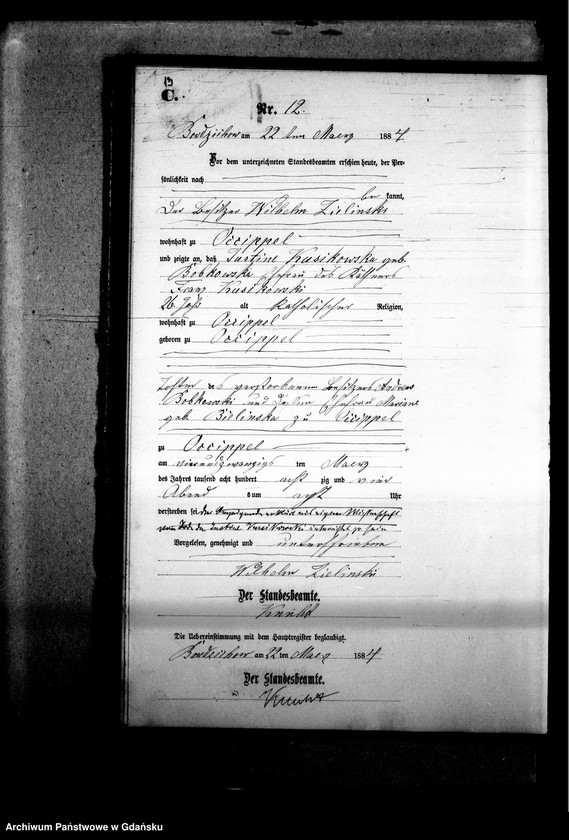 C.
Nr. 12.
Bordzichow am 22 ten Maerz 1884
Vor dem unterzeichneten Standesbeamten erschien heute, der Per-
sönlichkeit nach
be kannt,
Der Besitzer Wilhelm Zielinski
wohnhaft zu Occippel
und zeigte an, daß Justine Kusikowska geb.
Bobkowska Ehefrau des Käthners
Franz Kusikowski
26 Jahr alt katholischer Religion,
wohnhaft zu Occippel
geboren zu Occippel
Tochter des verstorbenen Besitzers Andreas
Bobkowski und dessen Ehefrau Mariane
geb. Bielinska zu Occippel
zu Occippel
am ten Maerz
des Jahres tausend acht hundert acht zig und vier
Abend s um acht Uhr
verstorben sei
Kusikowski unterrichtet zu sein
Vorgelesen, genehmigt und unterschrieben
Wilhelm Zielinski
Der Standesbeamte.
Die Uebereinstimmung mit dem Hauptregister beglaubigt.
Bordzichow am 22 ten Maerz 1884
Der Standesbeamte.
Archiwum Państwowe w Gdańsku